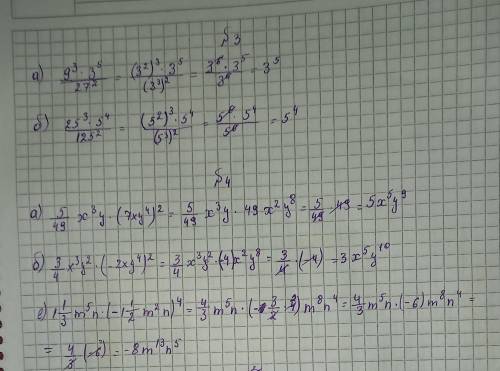 №3
а) 9³·3⁵/27² = (3²)³·3⁵/(3³)² = 3⁶·3⁵/3⁶ = 3⁵
б) 25³·5⁴/125² = (5²)³·5⁴/(5³)² = 5⁶·5⁴/5⁶ = 5⁴
№4
а) 5/49 x³y·(7xy⁴)² = 5/49 x³y·49x²y⁸ = 5/49·49 = 5x⁵y⁹
б) 3/4 x³y²·(-2xy⁴)² = 3/4 x³y²·(4)x²y⁸ = 3/4·(-4) = 3x⁵y¹⁰
с) 1 1/3 m⁵n·(-1 1/2 m²n)⁴ = 4/3 m⁵n·(-3/2·4)m⁸n⁴ = 4/3 m⁵n·(-6)m⁸n⁴ =
= 4/3(-6) = -8m¹³n⁵